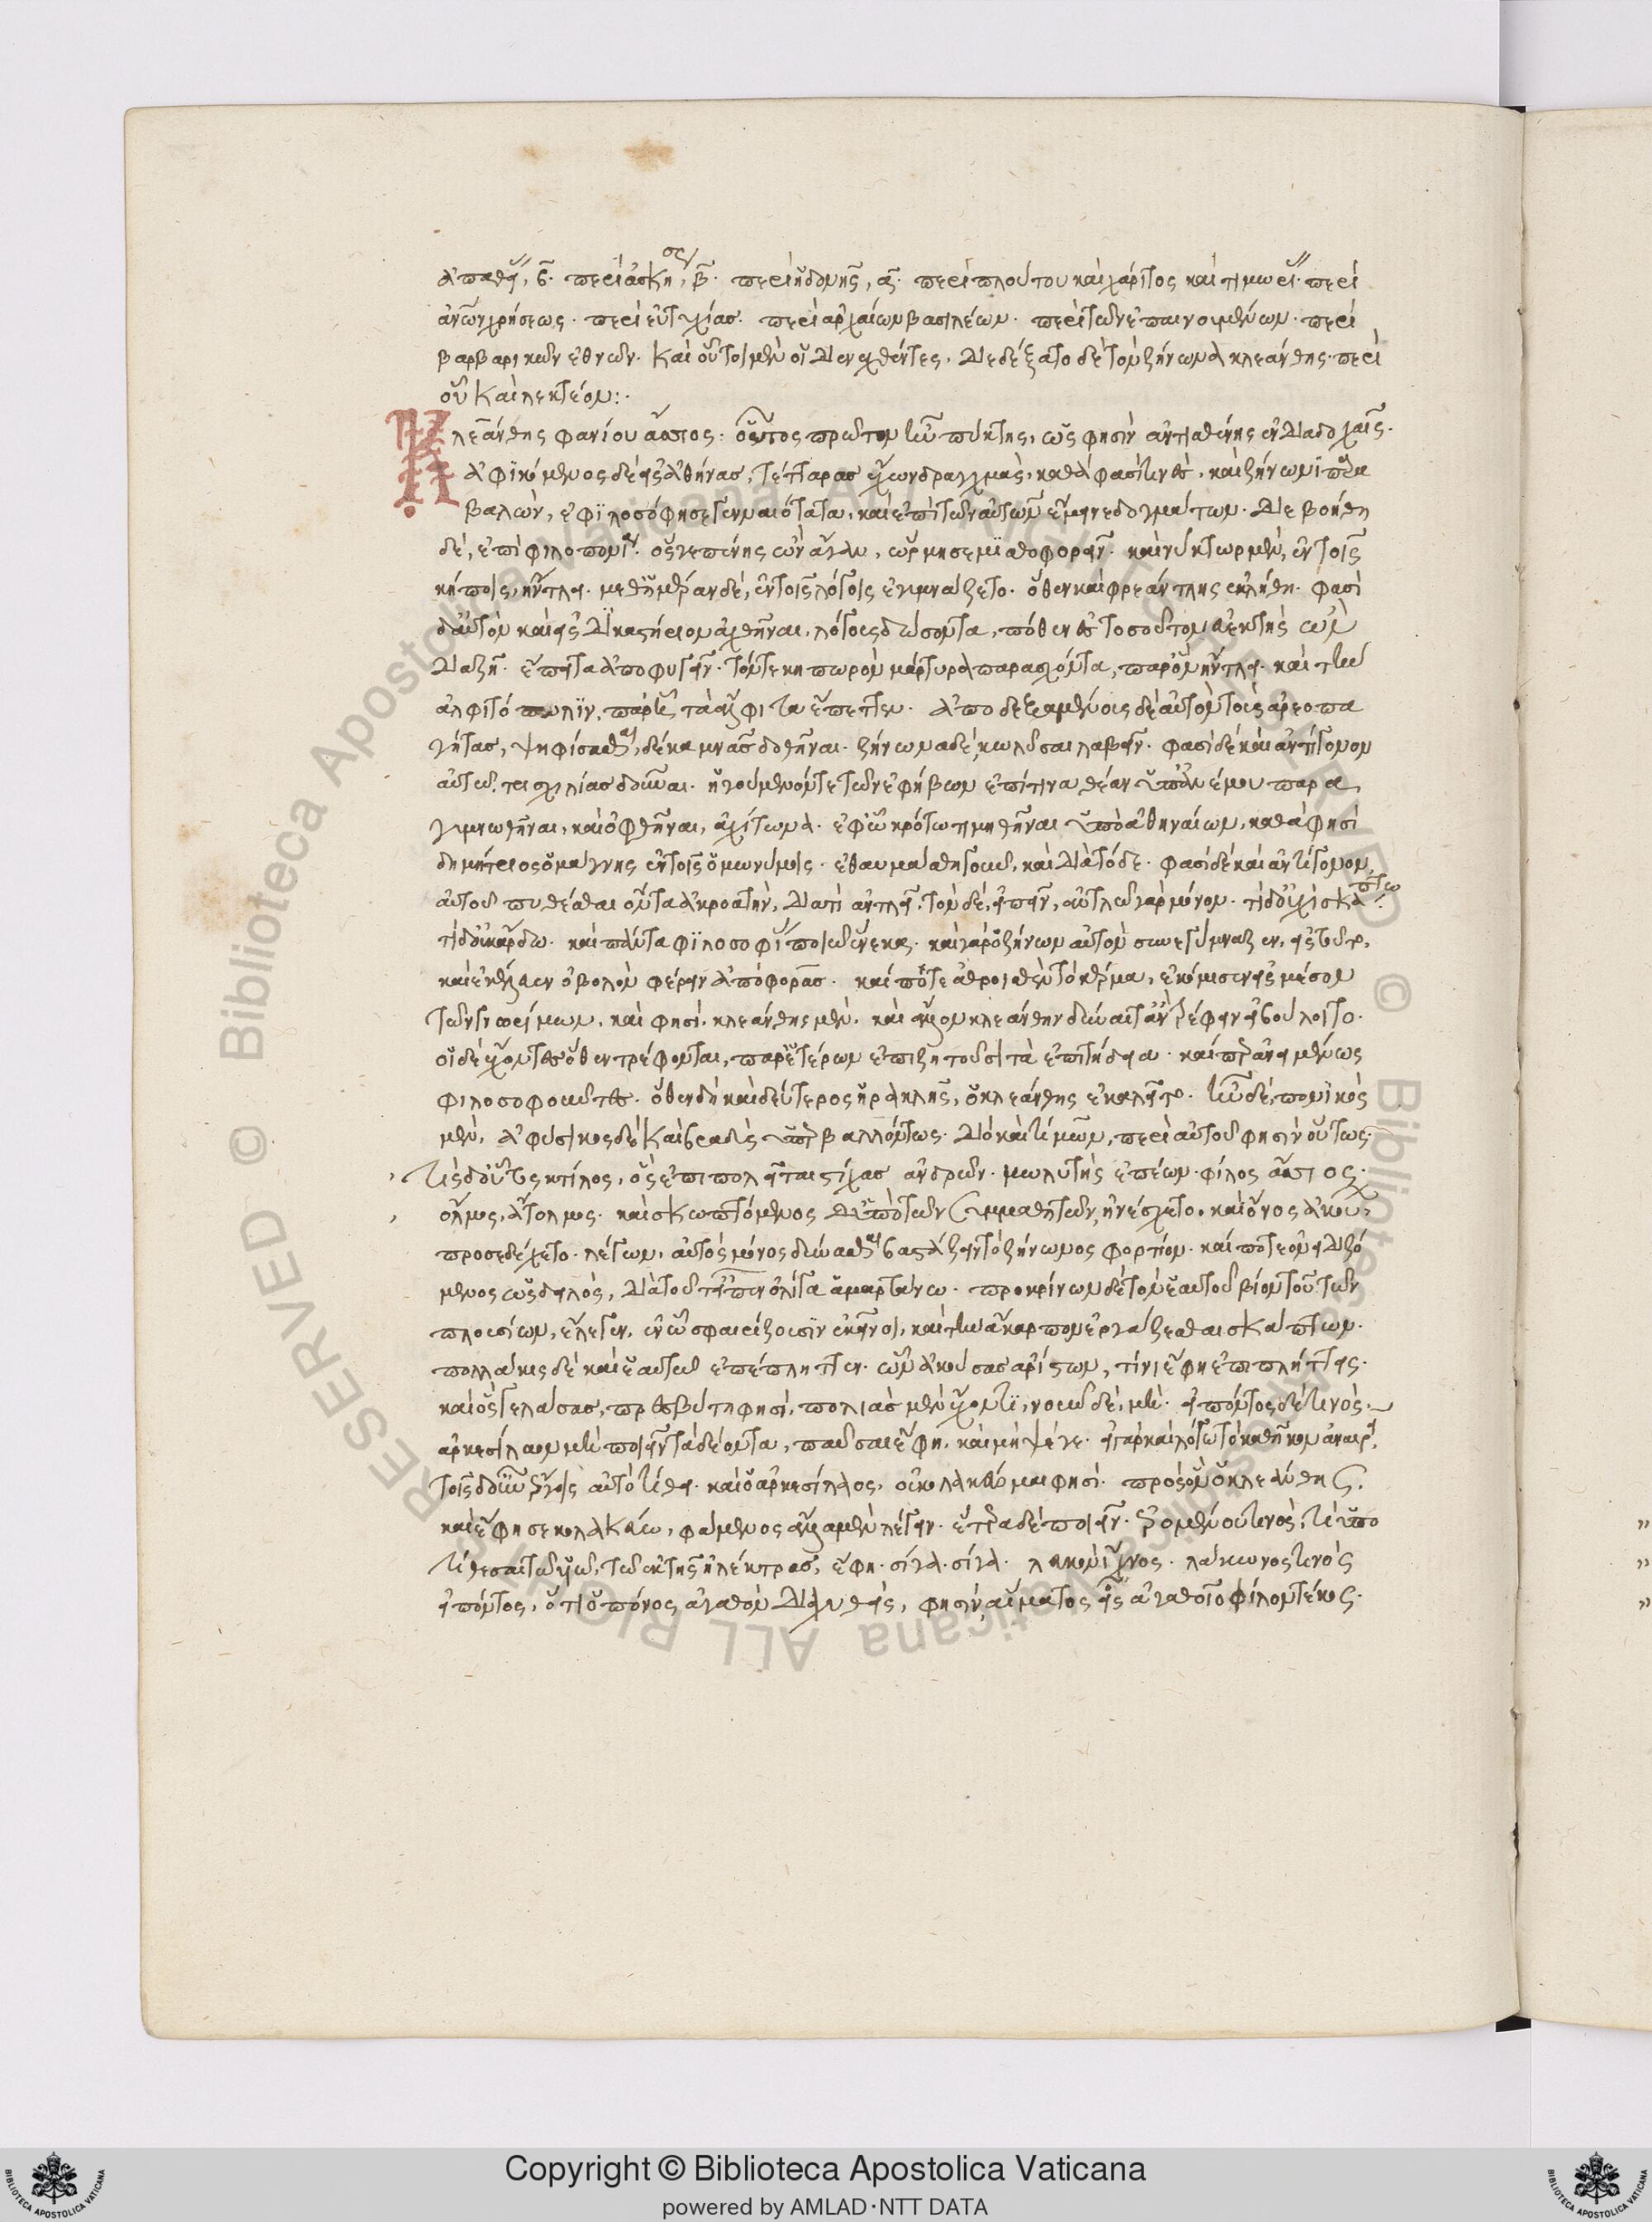 ἀπαθείας, β. περὶ ἀσκήσεως, β. περὶ ἡδονῆς, α. περὶ πλούτου καὶ χάριτος καὶ τιμωρίας. περὶ
ἀνων χρήσεως. περὶ εὐτυχίας. περὶ ἀρχαίων βασιλέων. περὶ τῶν ἐπαινουμένων. περὶ
βαρβαρικῶν ἐθνῶν. καὶ οὗτοι μὲν οἱ διενεχθέντες. διεδέξατο δὲ τὸν ζήνωνα κλεάνθης. περὶ
οὗ καὶ λεκτέον:.
Κλεάνθης φανίου ἄσσιος. οὗτος πρῶτον ἦν πύκτης, ὥς φησὶν ἀντισθένης ἐν διαδοχαῖς.
ἀφικόμενος δὲ εἰς ἀθήνας, τέτταρας ἔχων δραχμὰς, καθά φασί τινες, καὶ ζήνωνι παρα
βαλὼν, ἐφιλοσόφησε γενναιότατα, καὶ ἐπὶ τῶν αὐτῶν ἔμεινε δογμάτων. διεβοήθη
δὲ, ἐπὶ φιλοπονίᾳ. ὅς γε πένης ὢν ἄγαν, ὥρμησε μισθοφορεῖν. καὶ νύκτωρ μὲν, ἐν τοῖς
κήποις, ἤντλει. μεθημέραν δὲ, ἐν τοῖς λόγοις ἐγυμνάζετο. ὅθεν καὶ φρεάντλης ἐκλήθη. φασὶ
δ' αὐτὸν καὶ εἰς δικαστήριον ἀχθῆναι, λόγους δώσοντα, πόθεν ἐς τοσοῦτον εὐέκτης ὢν
διαζῇ. ἔπειτα ἀποφυγεῖν. τόν τε κηπωρὸν μάρτυρα παρασχόντα, παρ' ὃν ἤντλει. καὶ τὴν
ἀλφιτόπωλιν, παρ' ᾗ τὰ ἄλφιτα ἔπεττεν. ἀποδεξαμένους δὲ αὐτὸν τοὺς ἀρεοπα
γίτας, ψηφίσασθαι, δέκα μνᾶς δοθῆναι. ζήνωνα δὲ, κωλῦσαι λαβεῖν. φασὶ δὲ καὶ ἀντίγονον
αὐτῷ τρισχιλίας δοῦναι. ἡγούμενόν τε τῶν ἐφήβων ἐπί τινα θέαν ὑπ' ἀνέμου παρα
γυμνωθῆναι, καὶ ὀφθῆναι, ἀχίτωνα. ἐφ' ᾧ κρότῳ τιμηθῆναι ὑπὸ ἀθηναίων, καθά φησὶ
δημήτριος ὁ μάγνης ἐν τοῖς ὁμωνύμοις. ἐθαυμάσθη γοῦν, καὶ διὰ τόδε. φασὶ δὲ καὶ ἀντίγονον
αὐτοῦ πυθέσθαι ὄντα ἀκροατὴν, διατί ἀντλεῖ. τὸν δὲ, εἰπεῖν, ἀντλῶ γὰρ μόνον. τί δ' οὐχὶ σκάπτω.
τί δ' οὐκ ἄρδω. καὶ πάντα φιλοσοφίας ποιῶ ἕνεκα. καὶ γὰρ ὁ ζήνων αὐτὸν συνεγύμναζεν, εἰς τοῦτο,
καὶ ἐκέλευεν ὀβολὸν φέρειν ἀποφορᾶς. καί ποτε ἀθροισθὲν τὸ κέρμα, ἐκόμισεν εἰς μέσον
τῶν γνωρίμων. καὶ φησὶ. κλεάνθης μὲν. καὶ ἄλλον κλεάνθην δύναιτ' ἂν τρέφειν εἰ βούλοιτο.
οἱ δὲ ἔχοντες ὅθεν τρέφονται, παρ' ἑτέρων ἐπιζητοῦσι τὰ ἐπιτήδεια. καίπερ ἀνειμένως
φιλοσοφοῦντες. ὅθεν δὴ καὶ δεύτερος ἡρακλῆς, ὁ κλεάνθης ἐκαλεῖτο. ἦν δὲ, πονικὸς
μὲν, ἀφύσικος δὲ καὶ βραδὺς ὑπερβαλλόντως. διὸ καὶ τίμων, περὶ αὐτοῦ φησὶν οὕτως.
τίς δ' οὗτος κτίλος, ὣς ἐπιπολεῖται στίχας ἀνδρῶν. μωλυτὴς ἐπέων. φίλος ἄσσιος.
ὅλμος, ἄτολμος. καὶ σκωπτόμενος δ' ὑπὸ τῶν συμμαθητῶν, ἠνέσχετο. καὶ ὄνος ἀκούων,
προσεδέχετο. λέγων, αὐτὸς μόνος δύνασθαι βαστάζειν τὸ ζήνωνος φορτίον. καί ποτε ὀνειδιζό
μενος ὡς δειλὸς, διὰ τοῦτ' εἶπεν ὀλίγα ἁμαρτάνω. προκρίνων δὲ τὸν ἑαυτοῦ βίον τοῦ τῶν
πλουσίων, ἔλεγεν, ἐν ᾧ σφαιρίζουσιν ἐκεῖνοι, καὶ τὴν ἄκαρπον ἐργάζεσθαι σκάπτων.
πολλάκις δὲ καὶ ἑαυτῷ ἐπέπληττεν. ὧν ἀκούσας ἀρίστων, τίνι ἔφη ἐπιπλήττεις.
καὶ ὃς γελάσας, πρεσβύτῃ φησὶ, πολιὰς μὲν ἔχοντι, νοῦν δὲ, μή. εἰπόντος δέ τινος,
ἀρκεσίλαον μὴ ποιεῖν τὰ δέοντα, παῦσαι ἔφη. καὶ μὴ ψέγε. εἰ γὰρ καὶ λόγῳ τὸ καθῆκον ἀναιρεῖ,
τοῖς γοῦν ἔργοις αὐτὸ τιθεῖ. καὶ ὁ ἀρκεσίλαος, οὐ κολακεύομαι φησὶ. πρὸς ὃν ὁ κλεάνθης.
ναὶ ἔφη σε κολακεύω, φάμενος ἄλλα μὲν λέγειν. ἕτερα δὲ ποιεῖν. ἐρομένου τινὸς, τί ὑπο
τίθεσαι τῷ υἱῷ, τῷ ἐκ τῆς ἠλέκτρας, ἔφη. σίγα. σίγα. λευκὸν ἴχνος. λάκωνος τινὸς
εἰπόντος, ὅτι ὁ πόνος ἀγαθὸν διαχυθεὶς, φησὶν, αἵματος εἶς ἀγαθοῖο φίλον τέκος.
Copyright © Biblioteca Apostolica Vaticana
powered by AMLAD·NTT DATA